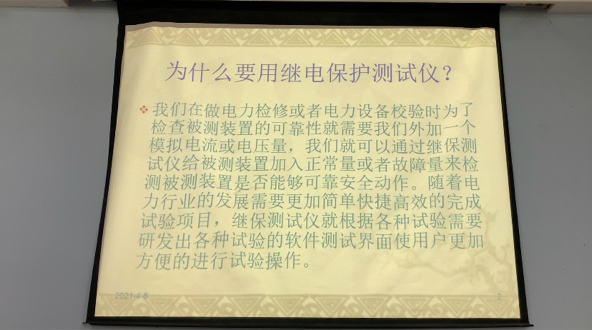 为什么要用继电保护测试仪？
我们在做电力检修或者电力设备校验时为了
检查被测装置的可靠性就需要我们外加一个
模拟电流或电压量，我们就可以通过继保测
试仪给被测装置加入正常量或者故障量来检
测被测装置是否能够可靠安全动作。随着电
力行业的发展需要更加简单快捷高效的完成
试验项目，继保测试仪就根据各种试验需要
研发出各种试验的软件测试界面使用户更加
方便的进行试验操作。